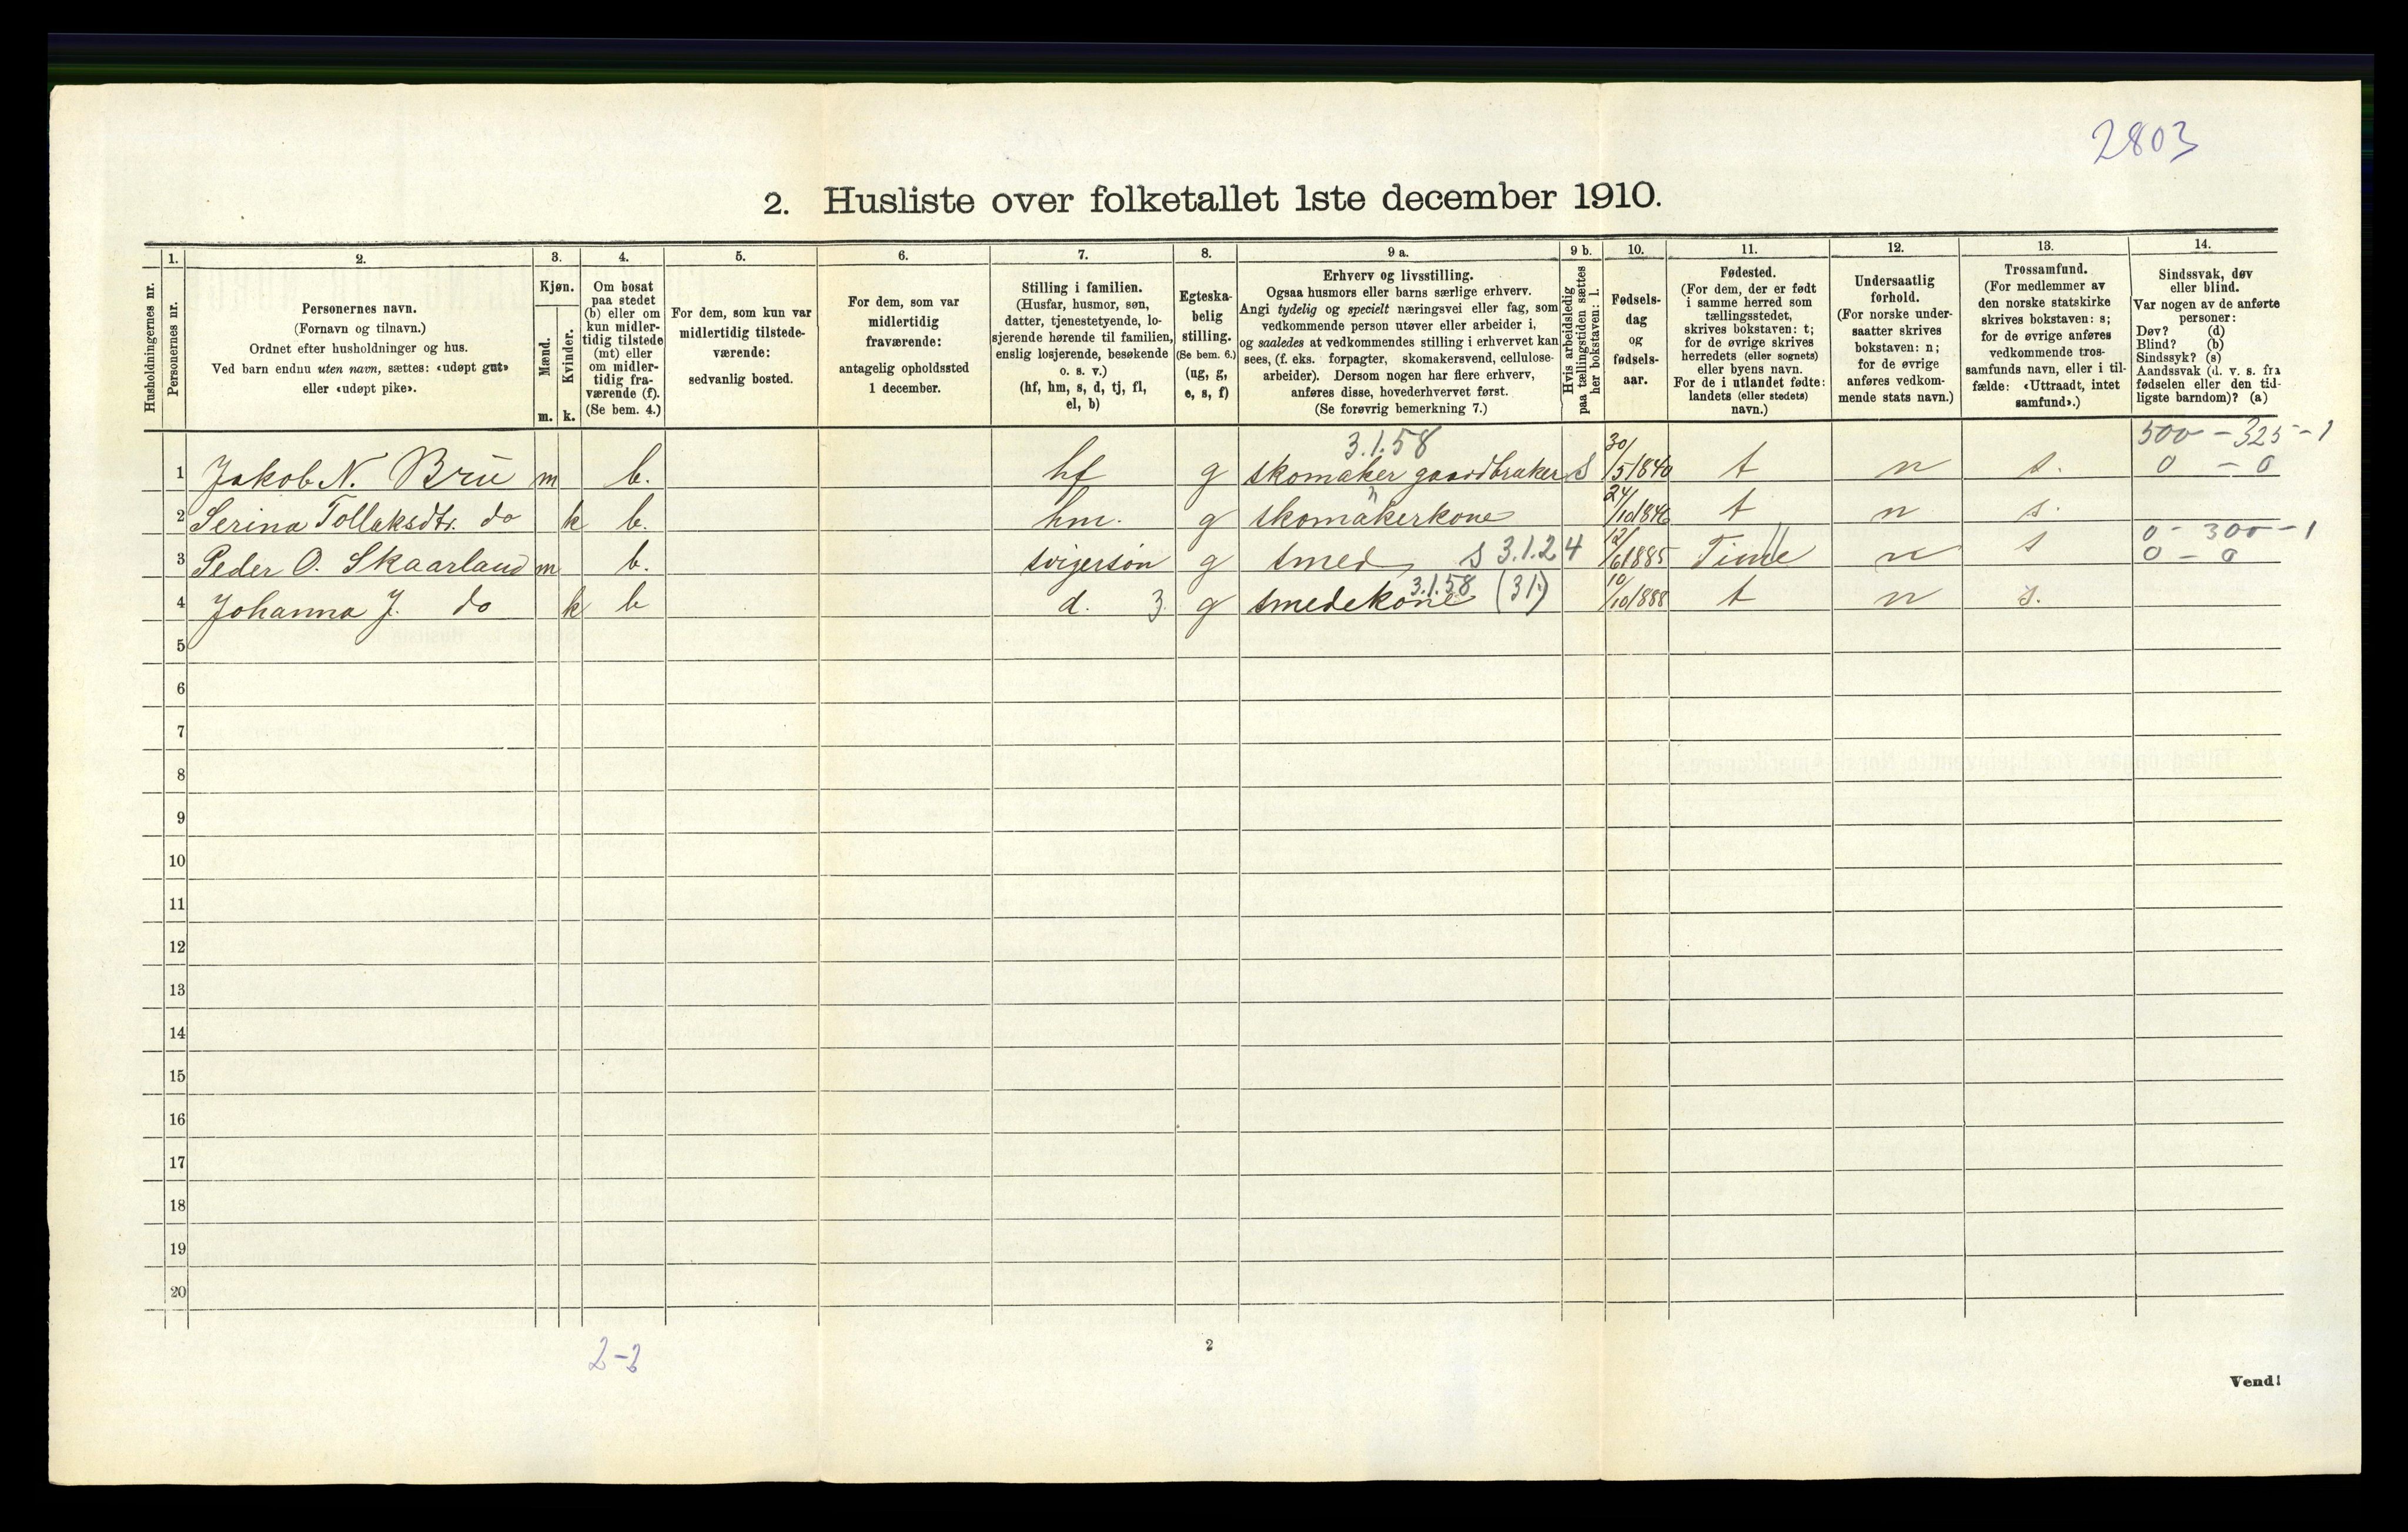 2803
2. Husliste over folketallet 1ste december 1910.
Husholdningernes nr.
1.
Personernes nr.
2.
Personernes navn.
(Fornavn og tilnavn.)
Ordnet efter husholdninger og hus.
Ved barn endnu uten navn, sættes: «udøpt gut»
eller «udøpt pike».
3.
Kjøn.
Mænd.
Kvinder.
m. k.
4.
Om bosat
paa stedet
(b) eller om
kun midler-
tidig tilstede
(mt) eller
om midler-
tidig fra-
værende (f).
(Se bem. 4.)
5.
For dem, som kun var
midlertidig tilstede-
værende:
sedvanlig bosted.
6.
For dem, som var
midlertidig
fraværende:
antagelig opholdssted
1 december.
7.
Stilling i familien.
(Husfar, husmor, søn,
datter, tjenestetyende, lo-
sjerende hørende til familien,
enslig losjerende, besøkende
o. s. v.)
(hf, hm, s, d, tj, fl,
el, b)
8.
Egteska-
belig
stilling.
(Se bem. 6.)
(ug, g,
e, s, f)
9 a.
Erhverv og livsstilling.
Ogsaa husmors eller barns særlige erhverv.
Angi tydelig og specielt næringsvei eller fag, som
vedkommende person utøver eller arbeider i,
og saaledes at vedkommendes stilling i erhvervet kan
sees, (f. eks. forpagter, skomakersvend, cellulose-
arbeider). Dersom nogen har flere erhverv,
anføres disse, hovederhvervet først.
(Se forøvrig bemerkning 7.)
9 b.
Hvis arbeidsledig
paa tællingstiden sættes
her bokstaven: l.
10.
Fødsels-
dag
og
fødsels-
aar.
11.
Fødested.
(For dem, der er født
i samme herred som
tællingsstedet,
skrives bokstaven: t;
for de øvrige skrives
herredets (eller sognets)
eller byens navn.
For de i utlandet fødte:
landets (eller stedets)
navn.)
12.
Undersaatlig
forhold.
(For norske under-
saatter skrives
bokstaven: n;
for de øvrige
anføres vedkom-
mende stats navn.)
13.
Trossamfund.
(For medlemmer av
den norske statskirke
skrives bokstaven: s;
for de øvrige anføres
vedkommende tros-
samfunds navn, eller i til-
fælde: «Uttraadt, intet
samfund».)
14.
Sindssvak, døv
eller blind.
Var nogen av de anførte
personer:
Døv? (d)
Blind? (b)
Sindssyk? (s)
Aandssvak (d. v. s. fra
fødselen eller den tid-
ligste barndom)? (a)
3.1.58 500 - 325 - 1
1 Jakob N. Bru m b. hf g skomaker gaardbruker S 30/5 1840 t n s. 0 - 0
2 Serina Tollaksdtr. do k b. hm. g skomakerkone 24/10 1846 t n s.
0 - 300 - 1
3 Peder O. Skaarland m b. svigersøn g smed s 3.1.24 12/6 1885 Time n s 0 - 0
3.1.58
4 Johanna J. do k b d. 3 g smedekone (31.) 10/10 1888 t n s.
5
6
7
8
9
10
11
12
13
14
15
16
17
18
19
20
2-2
2
Vend!